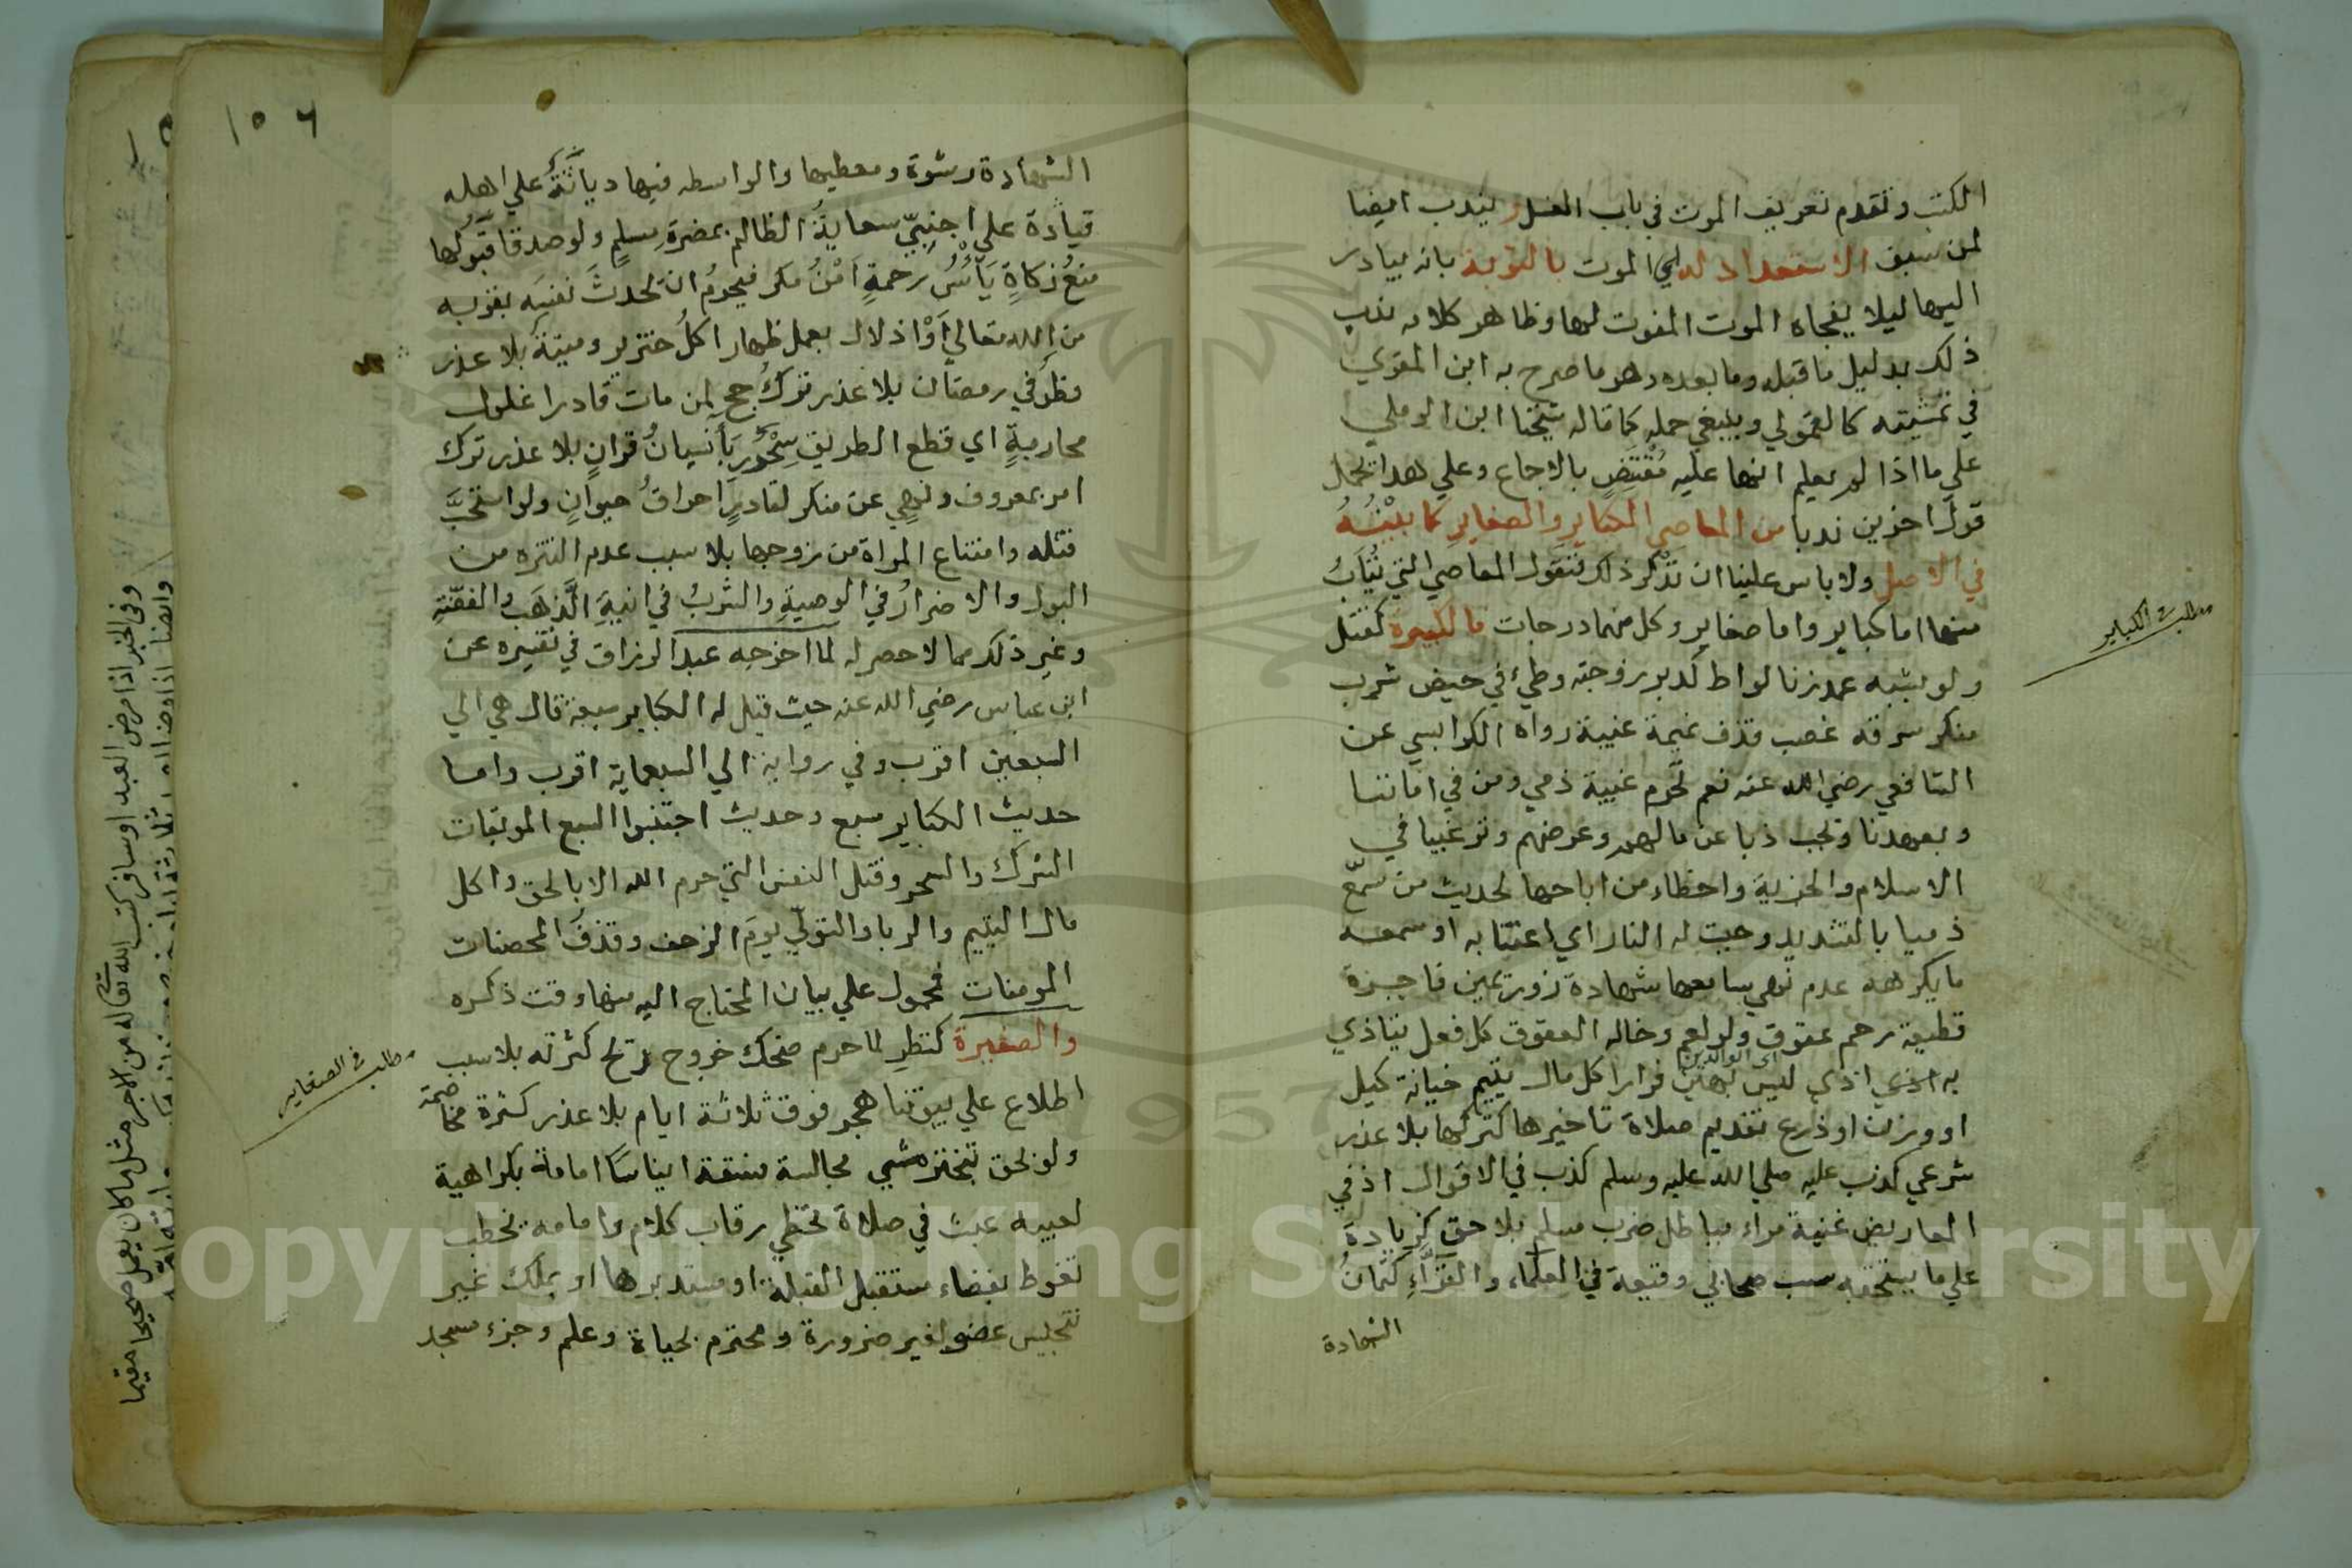 الكتب وتقدم تعريف الموت في باب الغسل ويندب ايضا
لمن سبق الاستعداد له اي الموت بالتوبة بانه يبادر
اليها ليلا يفجاه الموت المفوت لها وظاهر كلامه ندب
ذلك بدليل ما قبله وما بعده وهو ما صرح به ابن المقري
في تمشيته كالقمولي وينبغي حمله كما قاله شيخنا ابن الرملي
علي ما اذا لم يعلم انها عليه مُقْتَضٍ بالاجماع وعلي هذا يحمل
قول اخرين ندبا من المعاصي الكباير والصغاير كما بينته
في الاصل ولا باس علينا ان نذكر ذلك فنقول المعاصي التي يُتَابُ
منها اما كباير واما صغاير وكل منهما درجات فالكبيرة كقتل
ولو بشبه عمد زنا لواط لدبر زوجته وطيء في حيض شرب
منكر سرقة غصب قذف نميمة غيبة رواه الكرابيسي عن
الشافعي رضي الله عنه نعم تحرم غيبة ذمي ومن في اماننا
وبعهدنا وتجب ذبا عن مالهم وعرضهم وترغيبا في
الاسلام والجزية واخطاء من اباحها لحديث من سمّع
ذميا بالتشديد وجبت له النار اي اغتابه او سمعه
ما يكرهه عدم نهي سامعها شهادة زور يمين فاجرة
قطيعة رحم عقوق ولو لعم وخاله العقوق كل فعل يتاذي
اي الوالدين
به اذي اذي ليس بهين فرار اكل مال يتيم خيانة كيل
او وزن او ذرع تقديم صلاة تاخيرها كتركها بلا عذر
شرعي كذب عليه صلي الله عليه وسلم كذب في الاقوال اذ في
المعاريض غنية مراء بباطل ضرب مسلم بلا حق كزيادة
علي ما يستحقه سب صحابي وقيعة في العلماء والقرّاءِ كتمانُ
الشهادة
مطلب الكباير
١٥٦
الشهادة رشوة ومعطيها والواسطه فيها دياثةٌ علي اهله
قيادة علي اجنبيّ سعايةُ الظالم بمضرة مسلمٍ ولو صدقا قبولُها
منعُ زكاةٍ يَأْسُ رحمةٍ اَمْنُ مكر فيحرمُ ان تحدث نفسَه بقربه
من الله تعالي أَوْ اذلال بعمل ظهار اكل خنزير وميتة بلا عذر
فطر في رمضان بلا عذر تركُ حج لمن مات قادرا غلول
محاربةٍ اي قطع الطريق سِحْرُ رِبا نسيانُ قرانٍ بلا عذر ترك
امر بمعروف ونهي عن منكر لقادرٍ احراقُ حيوانٍ ولو استحبَّ
قتله وامتناع المراة من زوجها بلا سبب عدم التنزه من
البول والاضرارُ في الوصيةِ والشربُ في انيةِ الذَّهَبِ والفضّةِ
وغير ذلك مما لا حصر له لما اخرجه عبد الرزاق في تفسيره عن
ابن عباس رضي الله عنه حيث قيل له الكباير سبعة قال هي الي
السبعين اقرب وفي رواية الي السبعماية اقرب واما
حديث الكباير سبع وحديث اجتنبوا السبع الموبقات
الشرك والسحر وقتل النفس التي حرم الله الا بالحق واكل
مال اليتيم والربا والتولّي يومَ الزحف وقذفُ المحصنات
المومنات فمحمول علي بيان المحتاج اليه منها وقت ذكره
والصغيرة كنظر لما حرم ضحك خروج ريح كثرته بلا سبب
اطلاع علي بيوتنا هجر فوق ثلاثة ايام بلا عذر كثرة مخاصمة
ولو بحق تبختر مشي مجالسة فسقة ايناسا امامة بكراهية
لعيبه عبث في صلاة تخطي رقاب كلام وامامه يخطب
تغوط بفضاء مستقبل القبلة او مستدبرها او بملك غير
تنجيس عضو لغير ضرورة ومحترم لحياة وعلم وجزء مسجد
مطلب في الصغاير
وفي الخبر اذا مرض العبد او سافر كتب الله تعالى له من الاجر مثل ما كان يعمل صحيحا مقيما
Copyright © King Saud University
1957